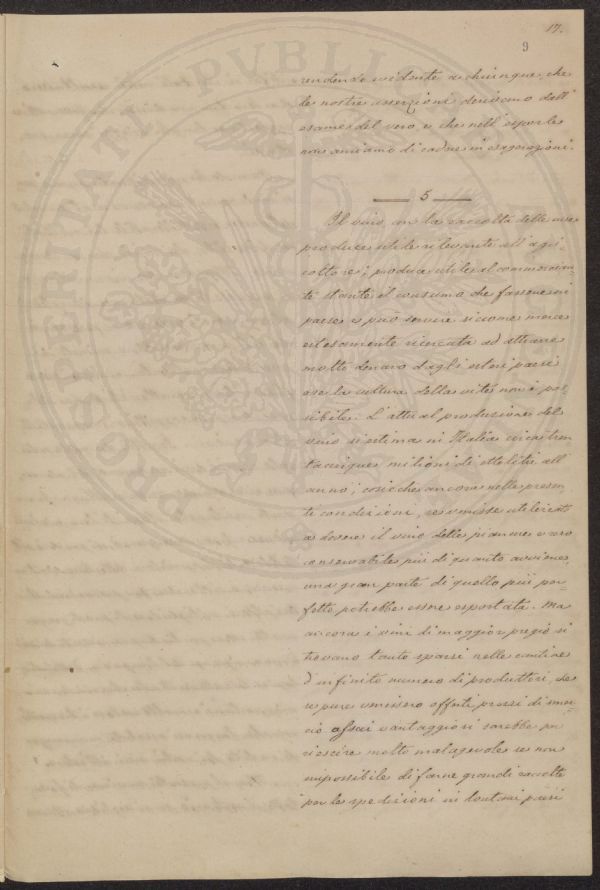 17.
9
rendendo evidente a chiunque, che
le nostre asserzioni derivano dall'
esame del vero, e che nell'esporle
non amiamo di cadere in esagerazioni.
5
Il vino con la raccolta delle uve
produce utile rilevante all'agri-
coltore; produce utile al commercian-
te stante il consumo che fassene in
paese e può servire siccome merce
estesamente ricercata ad attrarre
molto denaro dagli esteri paesi
ove la cultura della vite non è pos-
sibile. L'attual produzione del
vino si estima in Italia circa tren
tacinque milioni di ettolitri all'
anno; cosicché ancora nelle presen-
te condizioni, se venisse utilizzato
a dovere il vino delle pianure e reso
conservabile più di quanto avviene,
una gran parte di quello più per-
fetto potrebbe essere esportata. Ma
ancora i vini di maggior pregio si
trovano tanto sparsi nelle cantine
d'infinito numero di produttori, che
se pure venissero offerti prezzi di smer-
cio assai vantaggiosi sarebbe per
riescire molto malagevole se non
impossibile di farne grandi raccolte
per le spedizioni in lontani paesi
PROSPERITATI PVBLIC